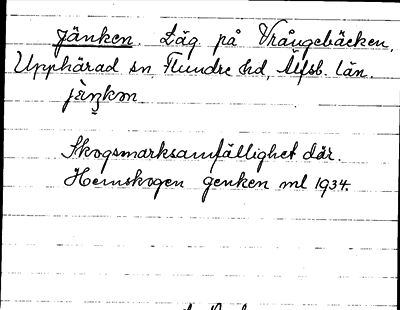 Jänken. Låg på Vrångebäcken,
Upphärad sn, Flundre hd, Älfsb. län.
Skogsmarksamfällighet där.
Hemskogen genken ml 1934.